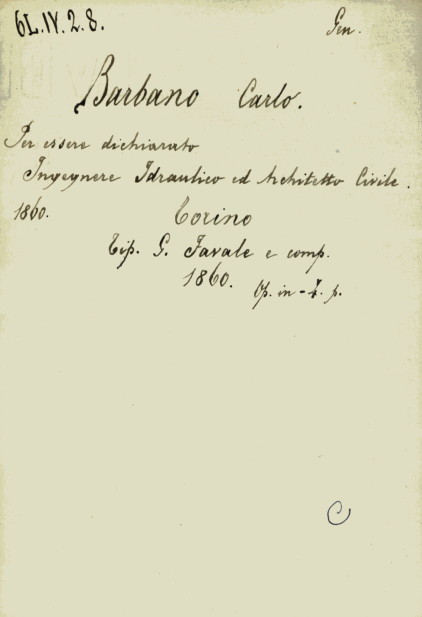 6L.IV.2.8.
Gen.
Barbano Carlo.
Per essere dichiarato
Ingegnere Idraulico ed Architetto Civile.
1860. Torino
Tip. G. Favale e comp.
1860. Op. in-4. p.
C